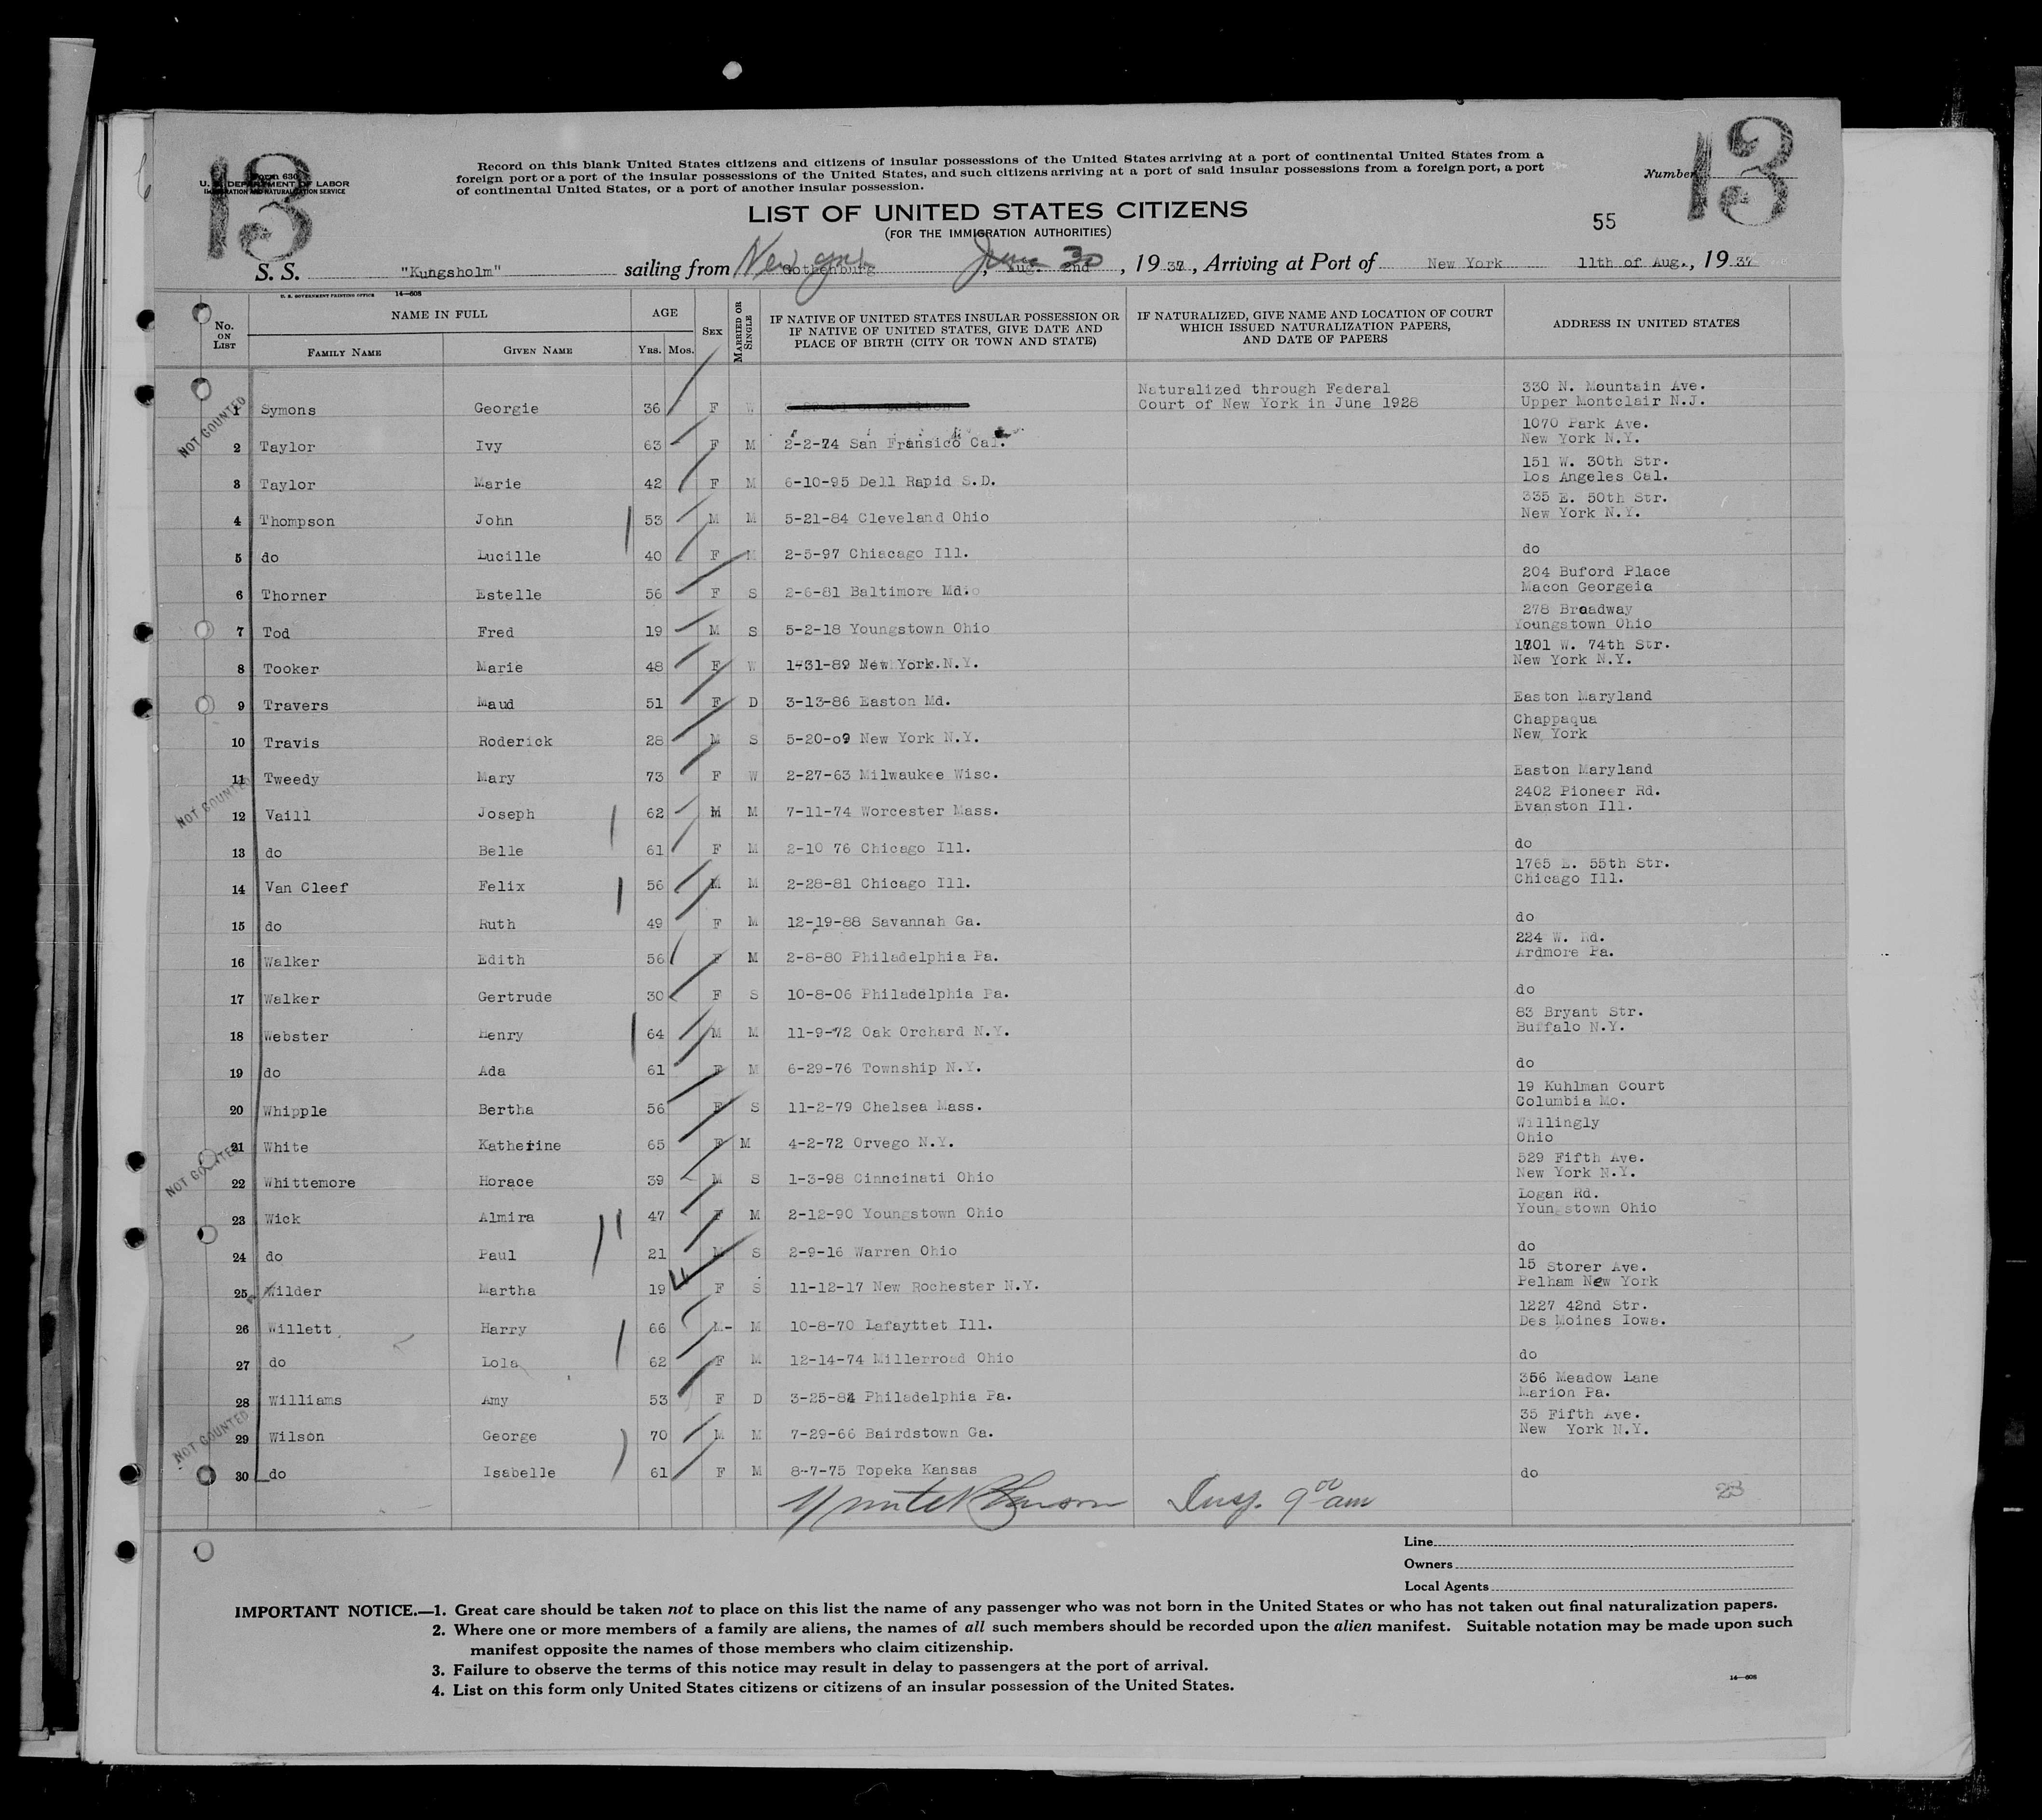 13
Form 630
U. S. DEPARTMENT OF LABOR
IMMIGRATION AND NATURALIZATION SERVICE
Record on this blank United States citizens and citizens of insular possessions of the United States arriving at a port of continental United States from a
foreign port or a port of the insular possessions of the United States, and such citizens arriving at a port of said insular possessions from a foreign port, a port
of continental United States, or a port of another insular possession.
Number 13
LIST OF UNITED STATES CITIZENS
(FOR THE IMMIGRATION AUTHORITIES)
55
S. S. "Kungsholm" sailing from New York Gothenburg, June 30 Aug. 2nd, 1937, Arriving at Port of New York 11th of Aug., 1937
U. S. GOVERNMENT PRINTING OFFICE 14—608
No. ON LIST
NAME IN FULL
FAMILY NAME GIVEN NAME
AGE
YRS. MOS.
SEX
MARRIED OR SINGLE
IF NATIVE OF UNITED STATES INSULAR POSSESSION OR
IF NATIVE OF UNITED STATES, GIVE DATE AND
PLACE OF BIRTH (CITY OR TOWN AND STATE)
IF NATURALIZED, GIVE NAME AND LOCATION OF COURT
WHICH ISSUED NATURALIZATION PAPERS,
AND DATE OF PAPERS
ADDRESS IN UNITED STATES
NOT COUNTED
1 Symons Georgie 36 F W Naturalized through Federal Court of New York in June 1928 330 N. Mountain Ave. Upper Montclair N.J.
2 Taylor Ivy 63 F M 2-2-74 San Fransico Cal. 1070 Park Ave. New York N.Y.
3 Taylor Marie 42 F M 6-10-95 Dell Rapid S.D. 151 W. 30th Str. Los Angeles Cal.
4 Thompson John 53 M M 5-21-84 Cleveland Ohio 335 E. 50th Str. New York N.Y.
5 do Lucille 40 F M 2-5-97 Chiacago Ill. do
6 Thorner Estelle 56 F S 2-6-81 Baltimore Md. 204 Buford Place Macon Georgeia
7 Tod Fred 19 M S 5-2-18 Youngstown Ohio 278 Broadway Youngstown Ohio
8 Tooker Marie 48 F W 1-31-89 New York.N.Y. W. 74th Str. New York N.Y.
9 Travers Maud 51 F D 3-13-86 Easton Md. Easton Maryland
10 Travis Roderick 28 M S 5-20-o9 New York N.Y. Chappaqua New York
11 Tweedy Mary 73 F W 2-27-63 Milwaukee Wisc. Easton Maryland
NOT COUNTED
12 Vaill Joseph 62 M M 7-11-74 Worcester Mass. 2402 Pioneer Rd. Evanston Ill.
13 do Belle 61 F M 2-10 76 Chicago Ill. do
14 Van Cleef Felix 56 M M 2-28-81 Chicago Ill. 1765 E. 55th Str. Chicago Ill.
15 do Ruth 49 F M 12-19-88 Savannah Ga. do
16 Walker Edith 56 F M 2-8-80 Philadelphia Pa. 224 W. Rd. Ardmore Pa.
17 Walker Gertrude 30 F S 10-8-06 Philadelphia Pa. do
18 Webster Henry 64 M M 11-9-72 Oak Orchard N.Y. 83 Bryant Str. Buffalo N.Y.
19 do Ada 61 F M 6-29-76 Township N.Y. do
20 Whipple Bertha 56 F S 11-2-79 Chelsea Mass. 19 Kuhlman Court Columbia Mo.
21 White Katherine 65 F M 4-2-72 Orvego N.Y. Willingly Ohio
NOT COUNTED
22 Whittemore Horace 39 M S 1-3-98 Cinncinati Ohio 529 Fifth Ave. New York N.Y.
23 Wick Almira 47 F M 2-12-90 Youngstown Ohio Logan Rd. Youngstown Ohio
24 do Paul 21 M S 2-9-16 Warren Ohio do
25 Wilder Martha 19 F S 11-12-17 New Rochester N.Y. 15 Storer Ave. Pelham New York
26 Willett Harry 66 M- M 10-8-70 Lafayttet Ill. 1227 42nd Str. Des Moines Iowa.
27 do Lola 62 F M 12-14-74 Millerroad Ohio do
28 Williams Amy 53 F D 3-25-84 Philadelphia Pa. 356 Meadow Lane Marion Pa.
NOT COUNTED
29 Wilson George 70 M M 7-29-66 Bairdstown Ga. 35 Fifth Ave. New York N.Y.
30 do Isabelle 61 F M 8-7-75 Topeka Kansas do
Insp. 9 00 am
23
Line
Owners
Local Agents
IMPORTANT NOTICE.—1. Great care should be taken not to place on this list the name of any passenger who was not born in the United States or who has not taken out final naturalization papers.
2. Where one or more members of a family are aliens, the names of all such members should be recorded upon the alien manifest. Suitable notation may be made upon such
manifest opposite the names of those members who claim citizenship.
3. Failure to observe the terms of this notice may result in delay to passengers at the port of arrival.
4. List on this form only United States citizens or citizens of an insular possession of the United States.
14—608